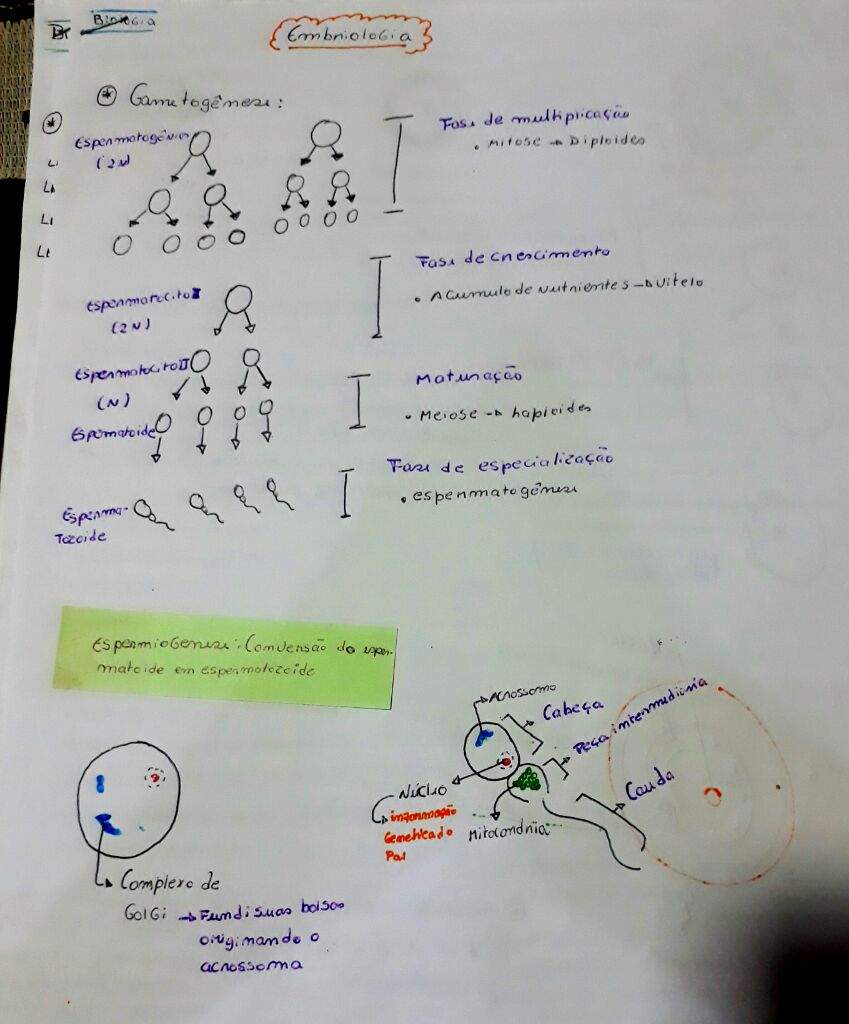 Biologia
Embriologia
* Gametogênese:
*
Espermatogônias
(2N)
Fase de multiplicação
• Mitose → Diploides
Fase de crescimento
• Acumulo de nutrientes → Vitelo
Espermatocito I
(2N)
Espermatocito II
(N)
Maturação
• Meiose → haploides
Espermatoide
Fase de especialização
• espermatogênese
Esperma-
tozoide
Espermiogenese: Conversão do esper-
matoide em espermatozoide
Acrossomo
Cabeça
Peça intermediaria
Cauda
Núcleo
informação
Genetica do
Pai
Mitocondria
Complexo de
Golgi → Fundi suas bolsas
originando o
acrossoma